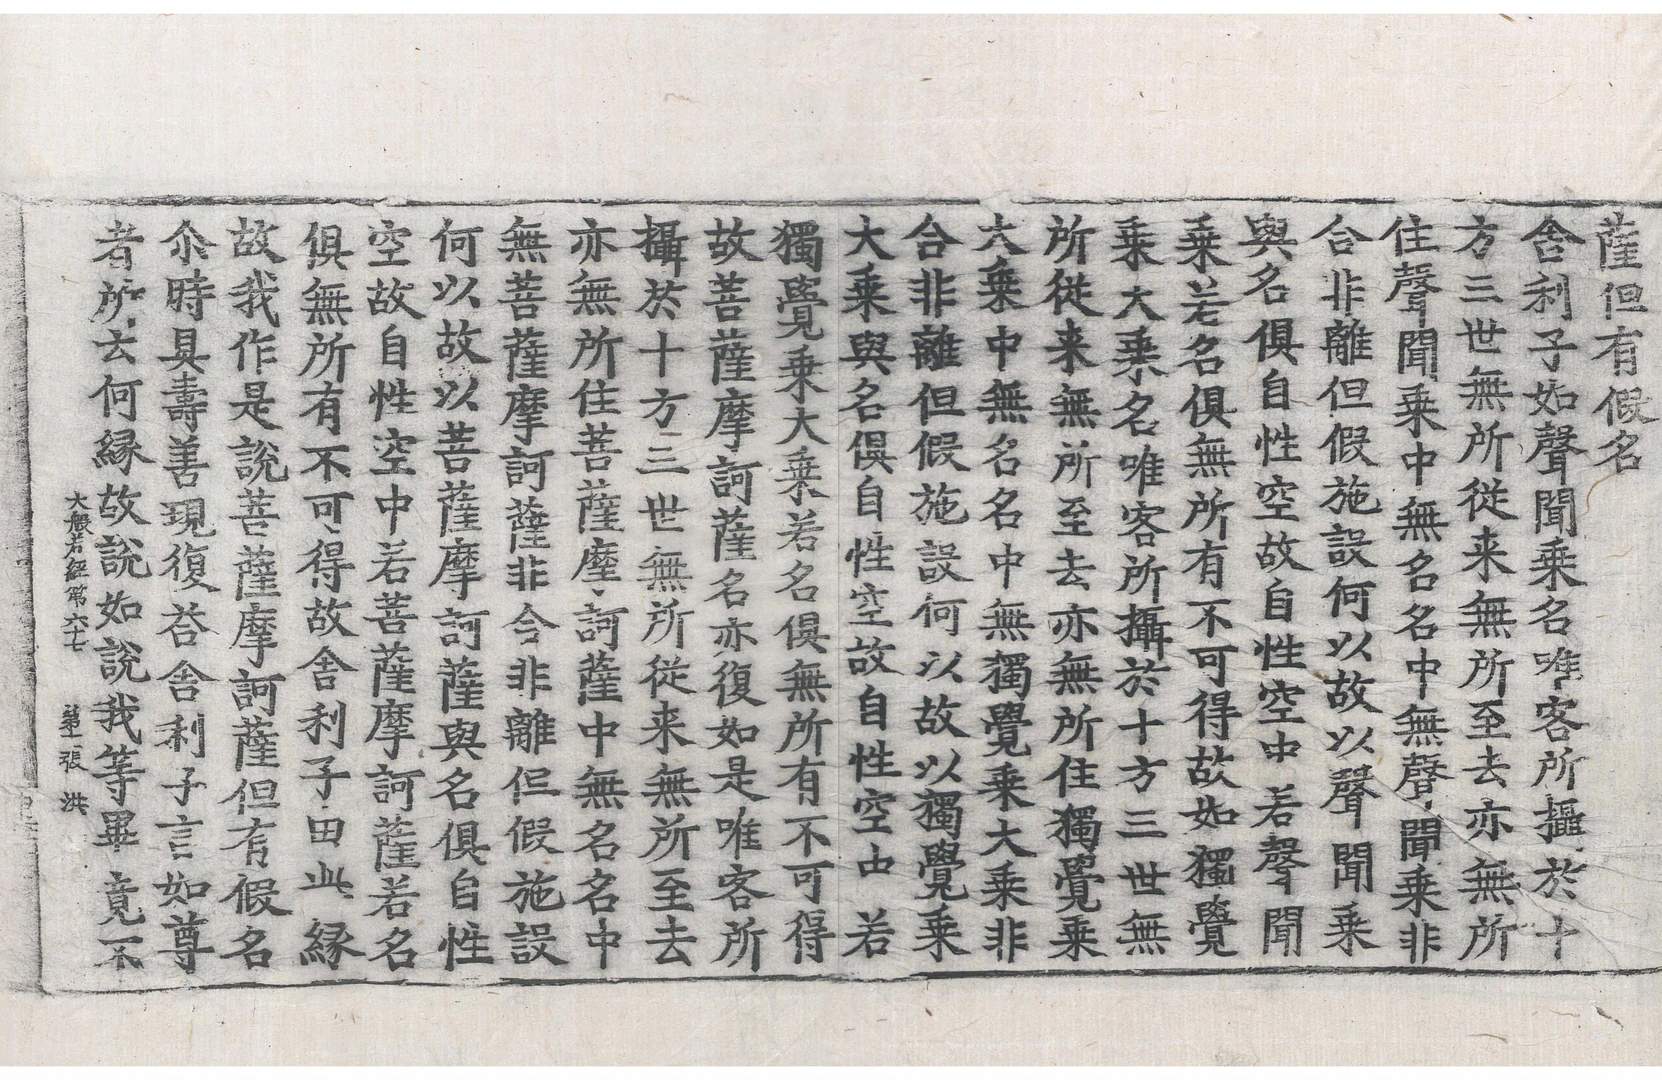 薩但有假名
舍利子如聲聞乘名唯客所攝於十
方三世無所從来無所至去亦無所
住聲聞乘中無名名中無聲聞乘非
合非離但假施設何以故以聲聞乘
與名俱自性空故自性空中若聲聞
乘若名俱無所有不可得故如獨覺
乘大乘名唯客所攝於十方三世無
所從来無所至去亦無所住獨覺乘
大乘中無名名中無獨覺乘大乘非
合非離但假施設何以故以獨覺乘
大乘與名俱自性空故自性空中若
獨覺乘大乘若名俱無所有不可得
故菩薩摩訶薩名亦復如是唯客所
攝於十方三世無所從来無所至去
亦無所住菩薩摩訶薩中無名名中
無菩薩摩訶薩非合非離但假施設
何以故以菩薩摩訶薩與名俱自性
空故自性空中若菩薩摩訶薩若名
俱無所有不可得故舍利子由此緣
故我作是說菩薩摩訶薩但有假名
尒時具壽善現復荅舍利子言如尊
者所云何緣故說如說我等畢竟不
大般若經第六十七 第十一張 洪